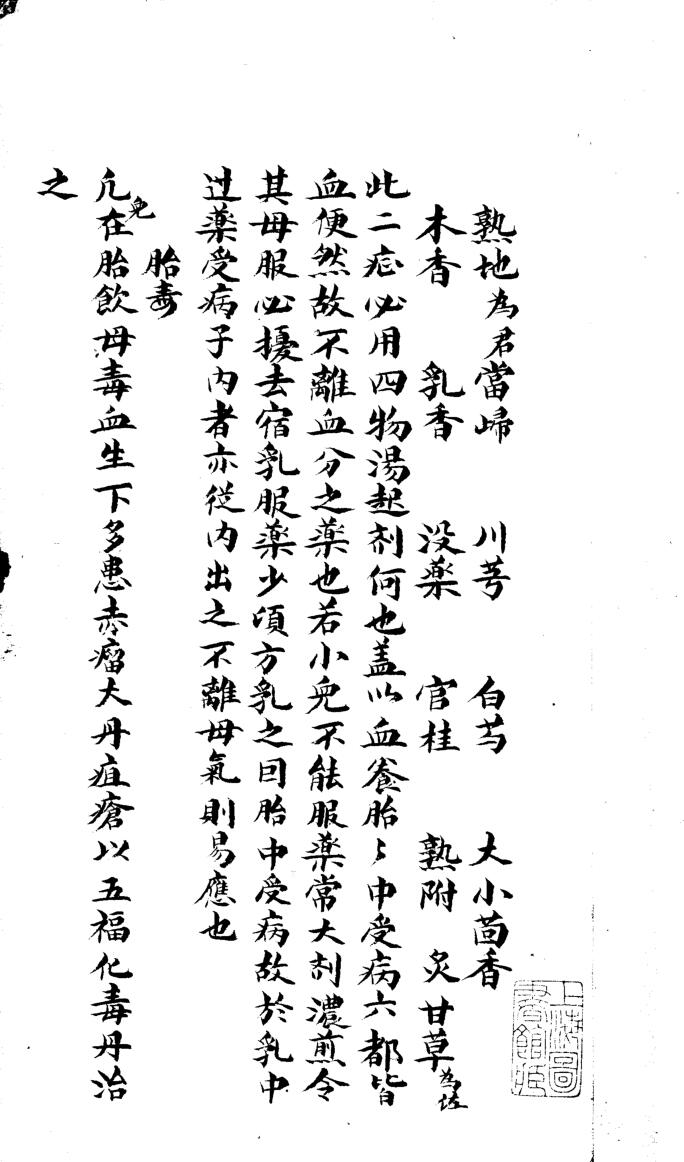 熟地為君當歸 川芎 白芍 大小茴香
木香 乳香 没藥 官桂 熟附 炙甘草為佐
此二症必用四物湯起剂何也盖以血養胎〻中受病六都皆
血便然故不離血分之藥也若小兒不能服藥常大剂濃煎令
其母服必擾去宿乳服藥少頃方乳之囙胎中受病故於乳中
过藥受病子内者亦從内出之不離母氣則易應也
胎毒
凢兒在胎飲母毒血生下多患赤瘤大丹疽瘡以五福化毒丹治
之
上海圖書館